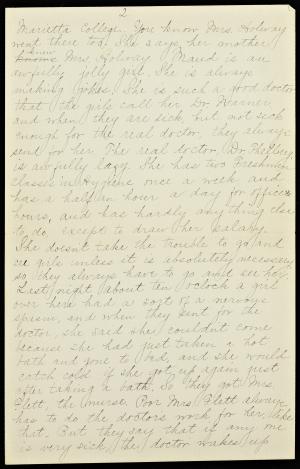 2
Marietta College. You know Mrs. Holway
went there too. She says her mother
knew
Mrs. Holway. Maud is an
awfully jolly girl. She is always
making jokes. She is such a good doctor
that the girls call her Dr. Warner,
and when they are sick, but not sick
enough for the real doctor, they always
send for her. The real doctor, Dr.
is awfully lazy. She has two Freshman
classes in Hygiene once a week and
has a half an hour a day for office
hours, and has hardly anything else
to do, except to draw her salary.
She doesn't take the trouble to go and
see girls unless it is absolutely necessary
so they always have to go and see her.
Last night about ten o'clock a girl
over here had a sort of a nervous
spasm, and when they sent for the
doctor, she said she couldn't come
because she had just taken a hot
bath and gone to bed, and she would
catch cold if she got up again just
after taking a bath. So they got Mrs.
Flett, the nurse. Poor Mrs. Flett always
has to do the doctors work for her,
that. But they say that if any one
is very sick, the doctor wakes up